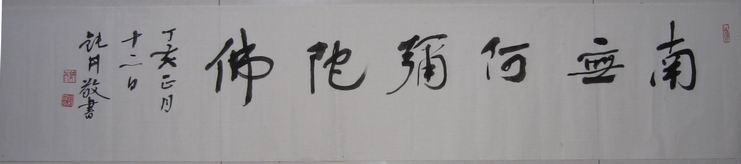 南無阿彌陀佛
丁亥正月
十二日
敬書